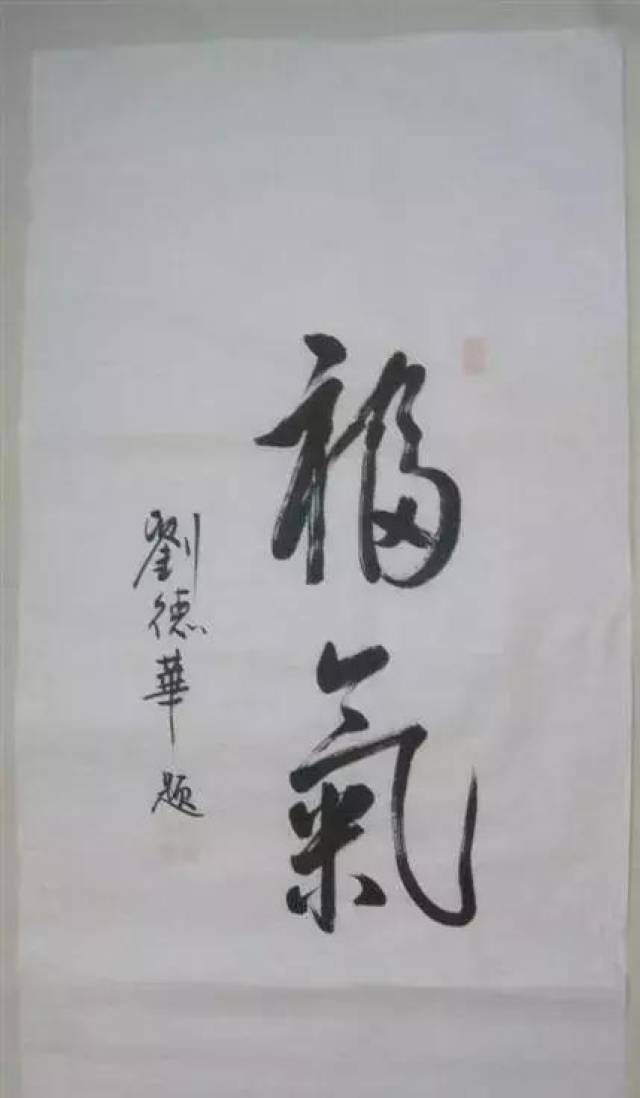 福氣
劉德華題